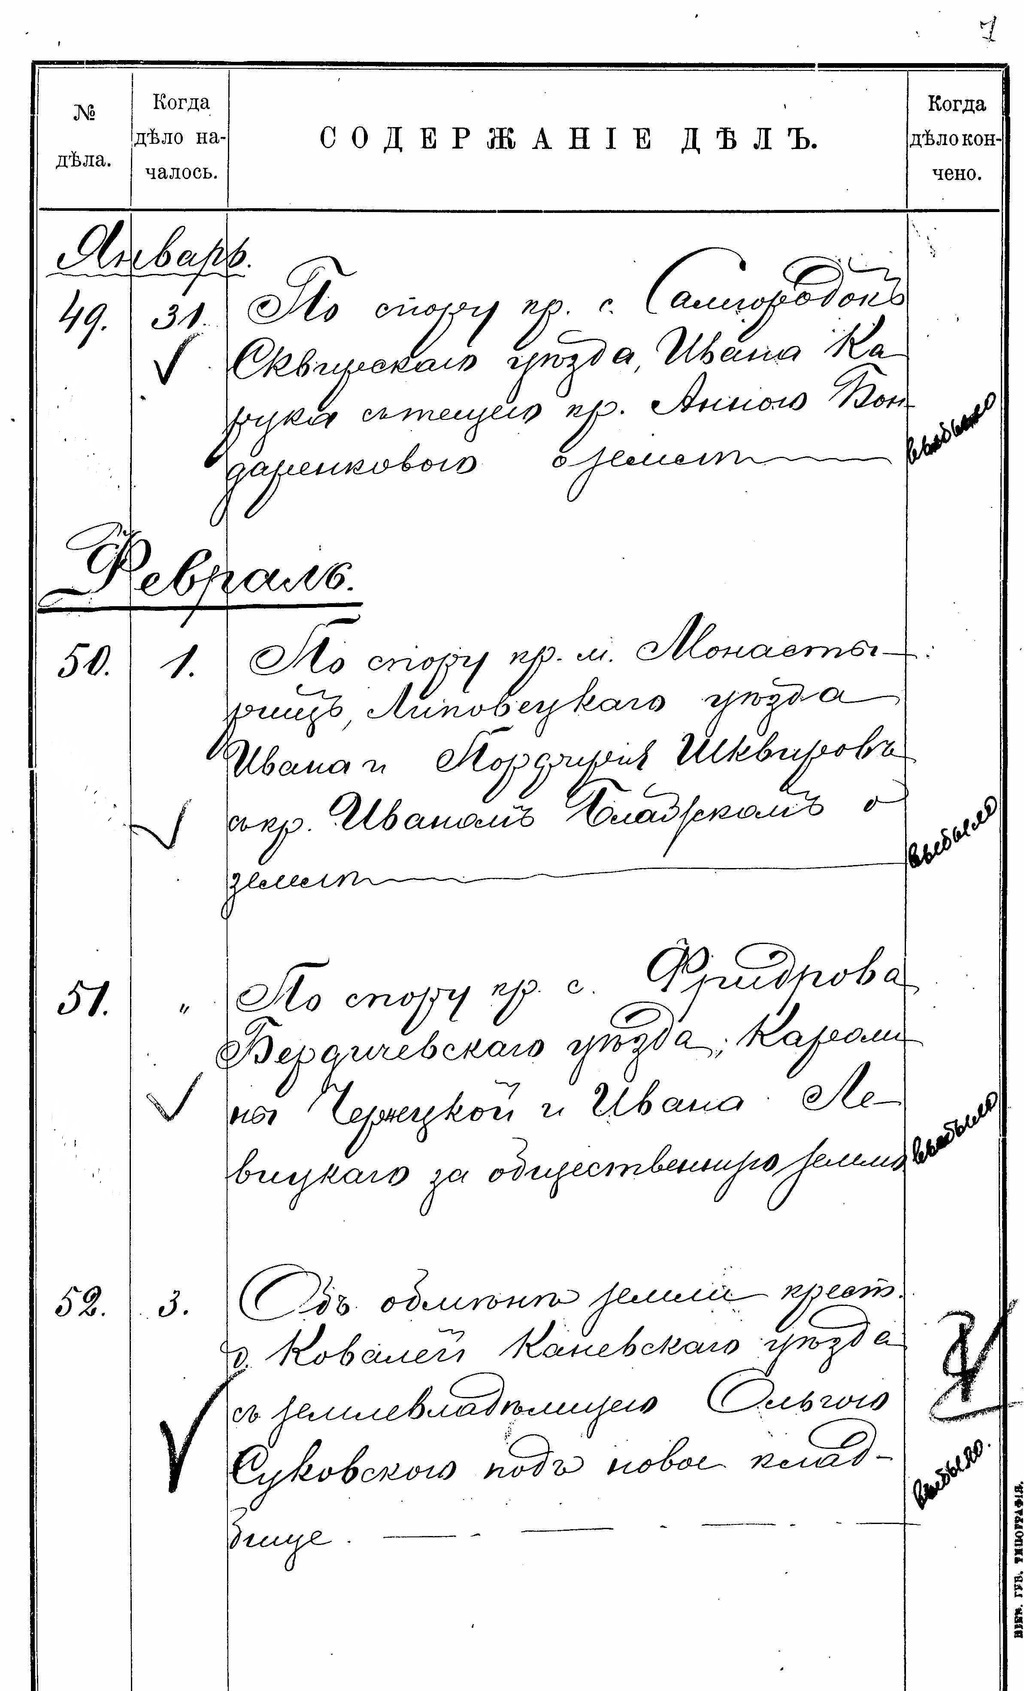 7
№ дѣла.
Когда дѣло на-чалось.
СОДЕРЖАНІЕ ДѢЛЪ.
Когда дѣло кон-чено.
Январь.
49. 31. По спору кр. с. Самгородокъ
Сквирскаго уѣзда, Ивана Ка
рука съ тещею кр. Анною Бон-
даренковою о землѣ
выбыло
Февраль.
50. 1. По спору кр. м. Монасты-
рищъ, Липовецкаго уѣзда
Ивана и Порфирія Шквировъ
съ кр. Иваномъ о
землѣ
выбыло
51. „ По спору кр. с. Фридрова
Бердичевскаго уѣзда, Кароли
ны Чержуцкой и Ивана Ле-
вицкаго за общественную землю
выбыло
52. 3. Объ обмѣнѣ земли крест.
д. Ковалей Каневскаго уѣзда
съ землевладѣлицею Ольгою
Суковскою подъ новое клад-
бище.
выбыло.
КІЕВ. ГУБ. ТИПОГРАФІЯ.